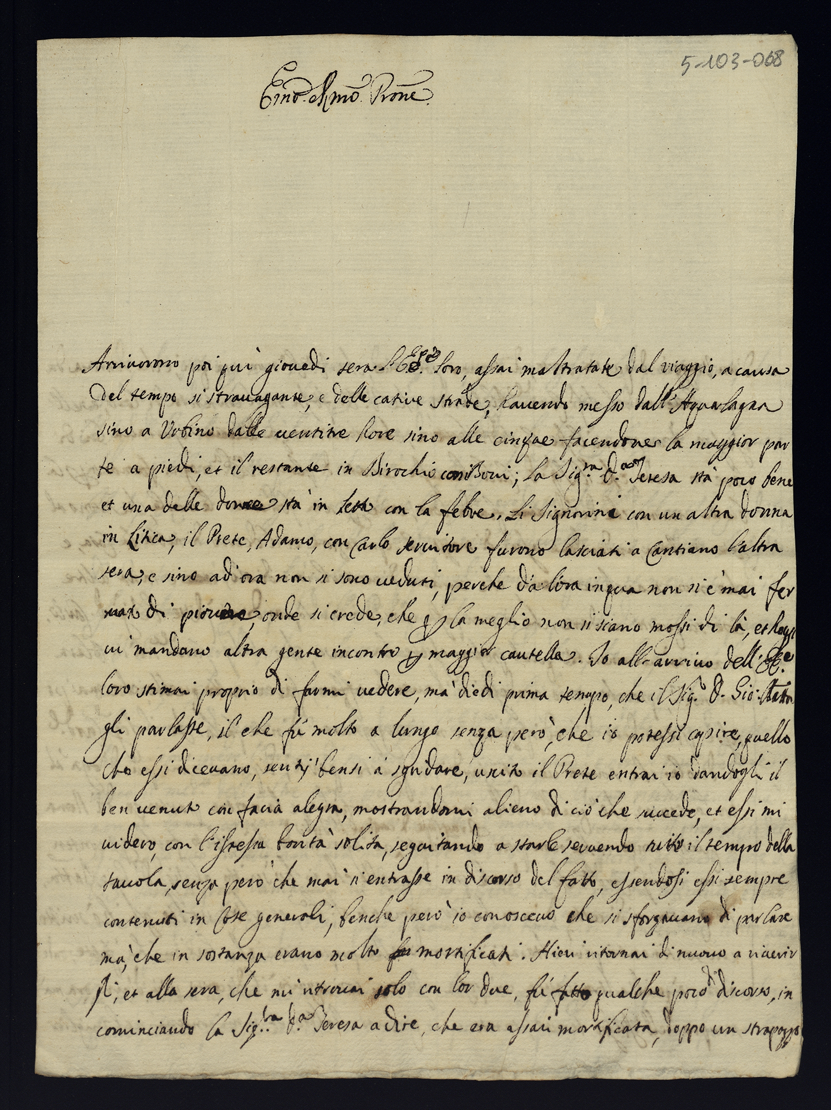 5-103-068
Emo. e Rmo. Prone.
Arrivorono poi qui giovedi sera l'EE. loro, assai maltratate dal viaggio, a causa
del tempo si stravagante, e delle cative strade, havendo messo dall'Aqualagna
sino a Urbino dalle ventitre hore sino alle cinque facendone la maggior par
te a piedi, et il restante in Birochio con Bovi; la Sig.ra D.a Teresa stà poco bene
et una delle donne stà in letto con la febre. Li Signorini con un altra donna
in Litica, il Prete, Adamo, con Carlo servitore furono lasciati a Cantiano l'altra
sera, e sino ad'ora non si sono veduti, perche da lora in qua non si è mai fer
mato di piovere, onde si crede, che p la meglio non si siano mossi di là, et hoggi
vi mandano altra gente incontro p maggior cautella. Io all'arrivo dell'EE.
loro stimai proprio di farmi vedere, mà diedi prima tempo, che il Sig.r D. Gio:
gli parlasse, il che fù molto a lungo senza però, che io potessi capire, quello
che essi dicevano, sentij bensi a sgridare, unito il Prete entrai io dandogli il
ben venuto con facia alegra, mostrandomi alieno di ciò che succede, et essi mi
videro, con l'istessa bontà solita, seguitando a starle servendo tutto il tempo della
tavola, senza però che mai si entrasse in discorso del fatto, essendosi essi sempre
contenuti in cose generali, benche però io conoscevo che si sforzavano di parlare
mà, che in sostanza erano molto mortificati. Hieri ritornai di nuovo a riverir
li, et alla sera, che mi ritrovai solo con lor due, fù fatto qualche poco di discorso, in
cominciando la Sig.ra D.a Teresa a dire, che era assai mortificata, doppo un strapazzo